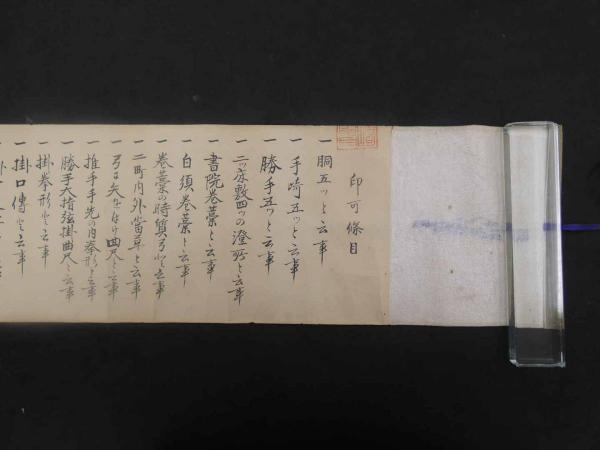 印可條目
一 胴五ッと云事
一 手崎五ッと云事
一 勝手五ッと云事
一 二ッ床敷四ッの澄所と云事
一 書院巻藁と云事
一 白須巻藁と云事
一 巻藁の時質弓と云事
一 二町内外當草と云事
一 弓に矢をはけ曲尺と云事
一 推手手先の内拳形と云事
一 勝手大指弦掛曲尺と云事
一 掛拳形と云事
一 掛口傳と云事